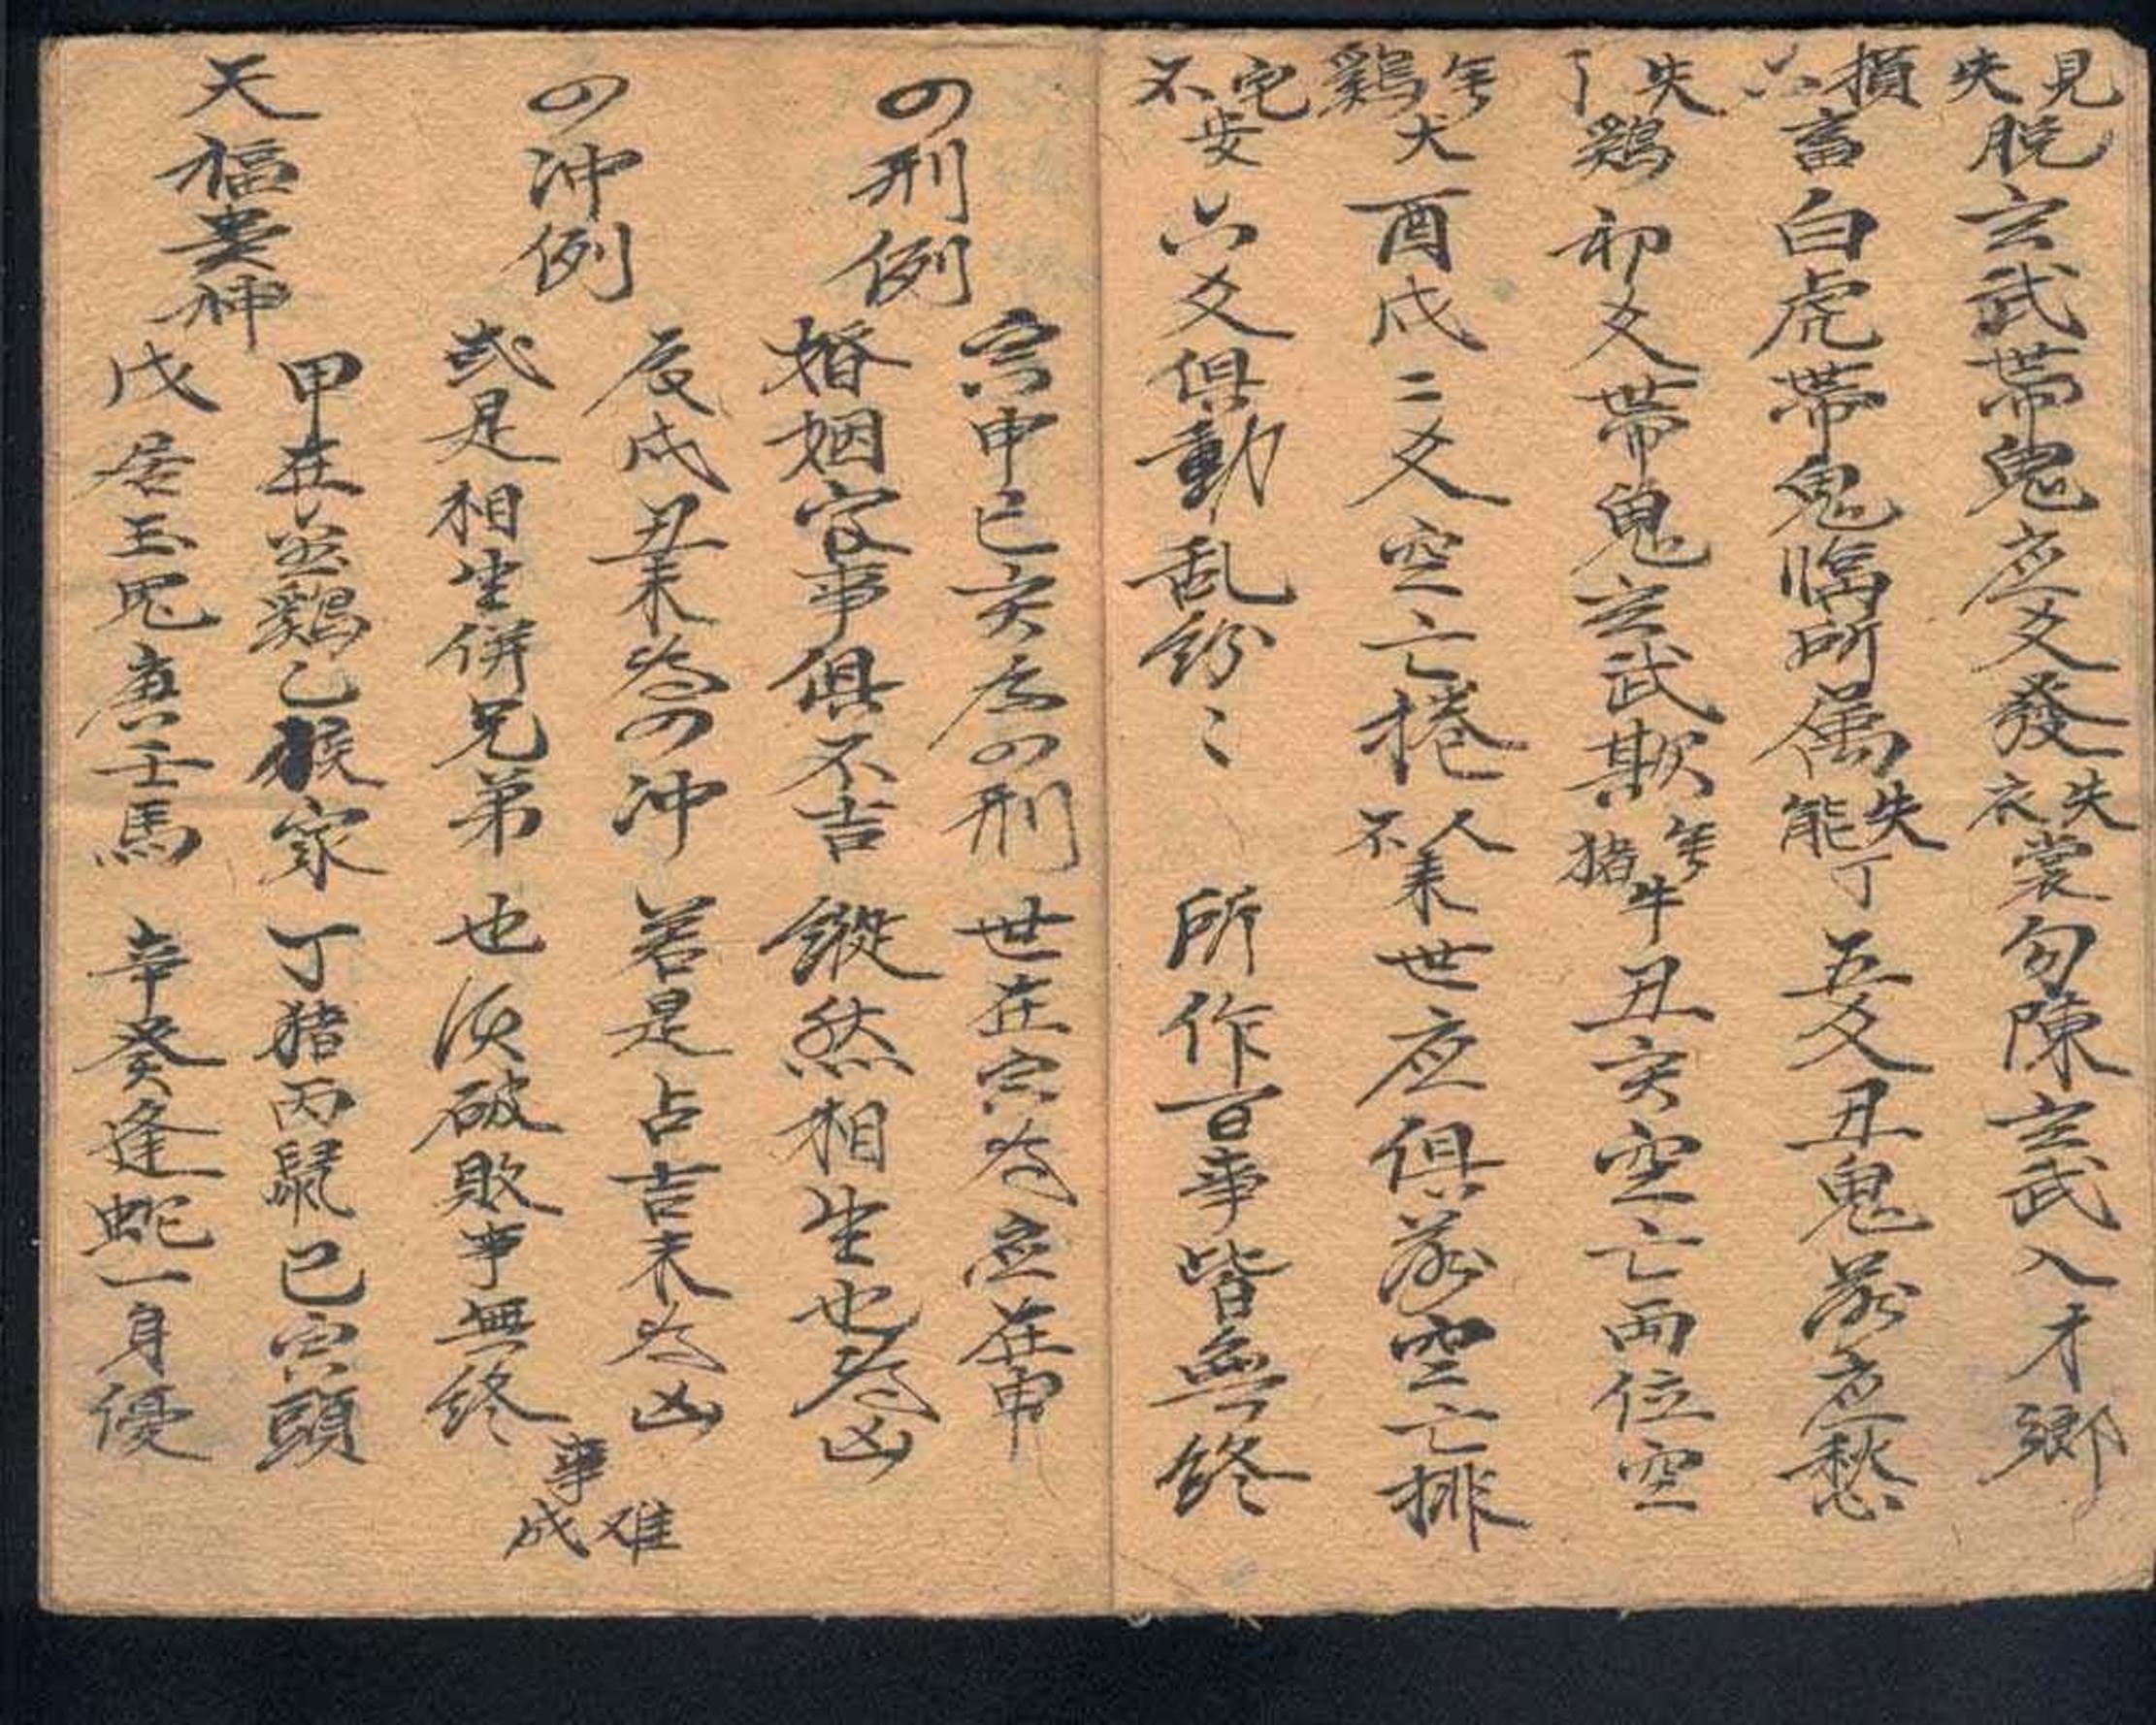 見失脱 玄武帯鬼应爻發 失衣裳 勾陳玄武入才鄉
損六畜 白虎帯鬼臨所属 失能丁 五爻丑鬼落应愁
失了鷄 卯爻帯鬼玄武欺 年猪牛 丑亥空亡两位空
年鷄犬 酉戌二爻空亡捲 人不来 世应俱落空亡排
宅不安 六爻俱動乱紛〻 所作百事皆無終
四刑例
寅申巳亥为四刑 世在寅为应在申
婚姻官事俱不吉 縱然相生也为凶
四冲例
辰戌丑未为四冲 若是占吉未为凶
或是相生併兄弟 也须破敗事無終
事难成
天福貴神
甲在金鷄乙猴家 丁猪丙鼠己寅頭
戊居玉兎庚壬馬 辛癸逢蛇一身優